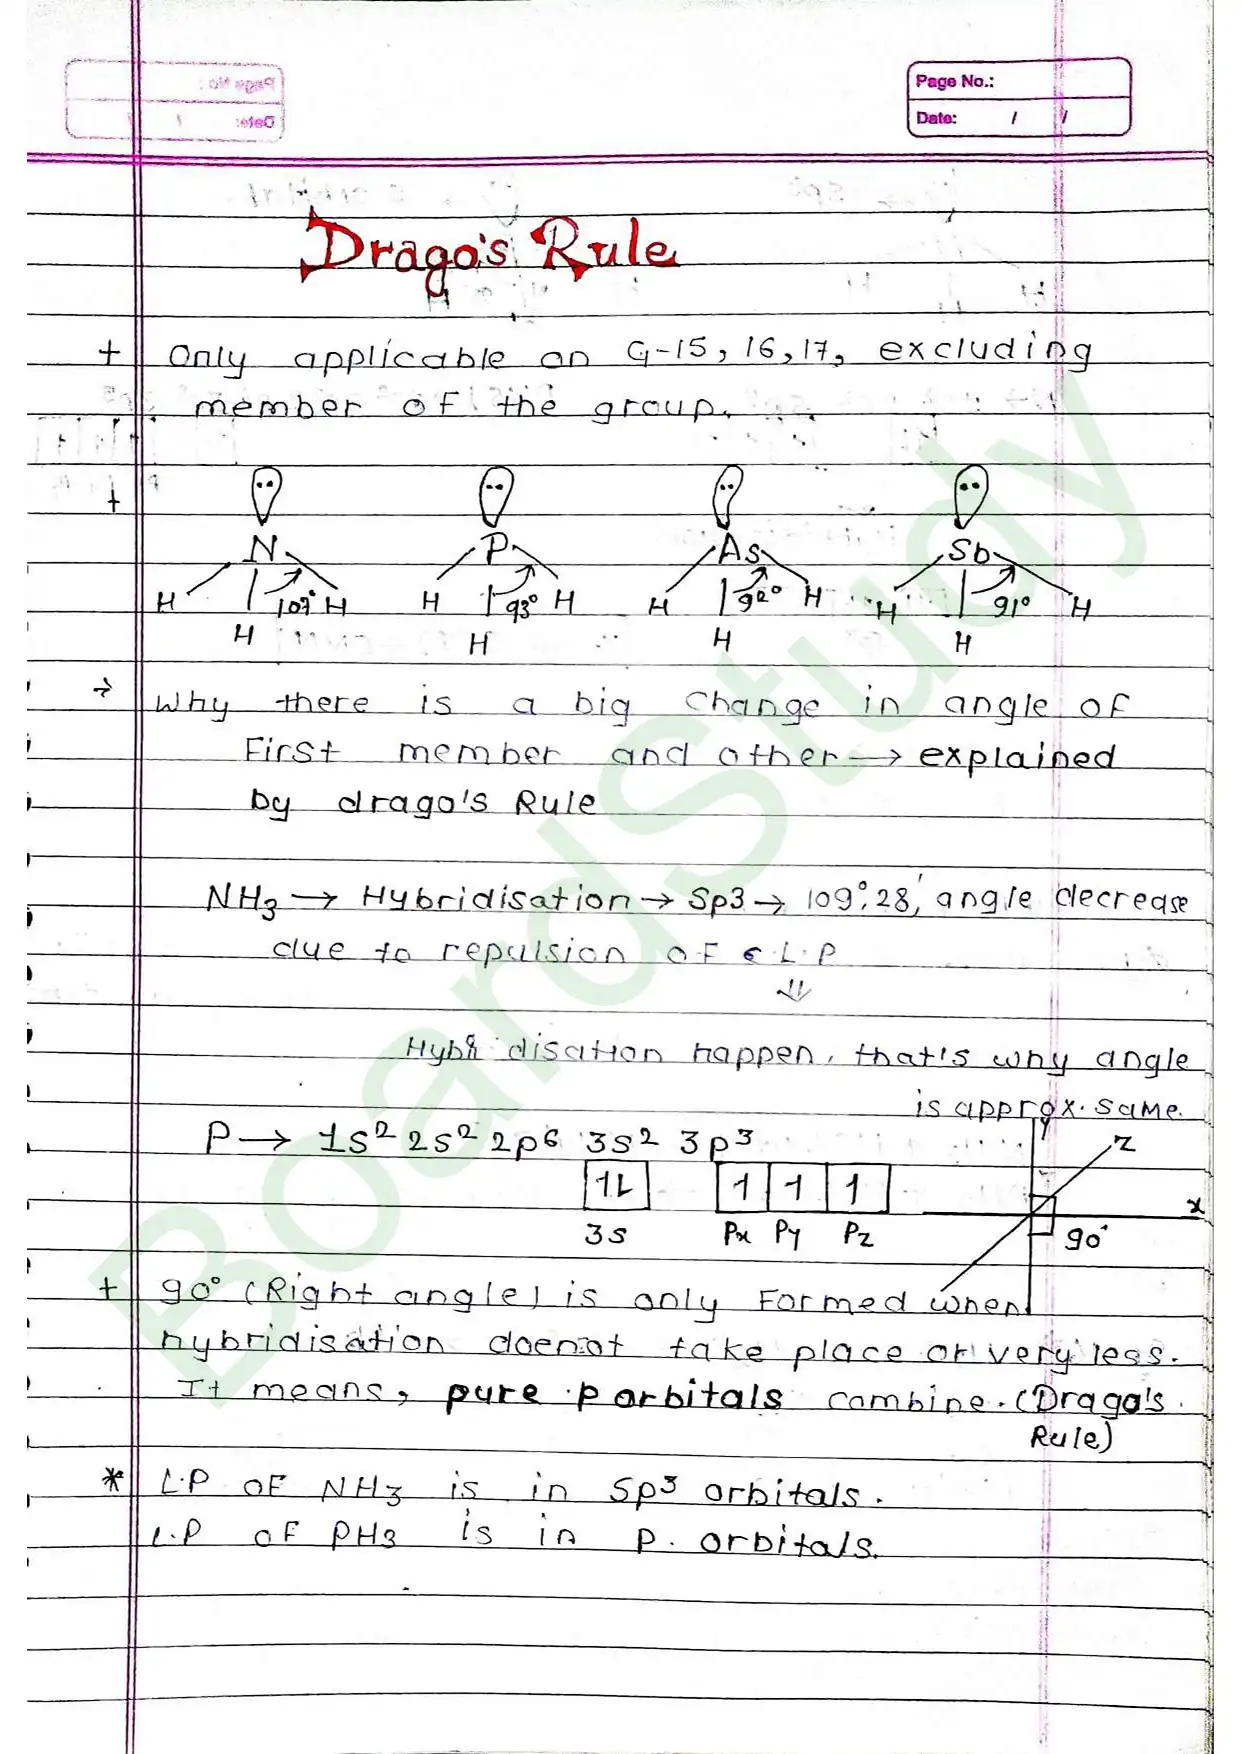 Page No.:
Date: / /
Drago's Rule
+ Only applicable on G-15, 16, 17, excluding
member of the group.
+
N P As Sb
H 107° H H 93° H H 92° H H 91° H
H H H H
→ Why there is a big Change in angle of
First member and other → explained
by drago's Rule
NH3 → Hybridisation → Sp3 → 109°,28', angle decrease
due to repulsion of L.P
⇓
Hybridisation happen, that's why angle
is approx. same.
P → 1s² 2s² 2p⁶ 3s² 3p³
y z x
1L 1 1 1
3s Px Py Pz 90°
+ 90° (Right angle) is only Formed when
hybridisation doenot take place or very less.
It means, pure p orbitals combine. (Drago's
Rule)
* L.P OF NH3 is in Sp³ orbitals.
L.P OF PH3 is in P. orbitals.
BoardStudy